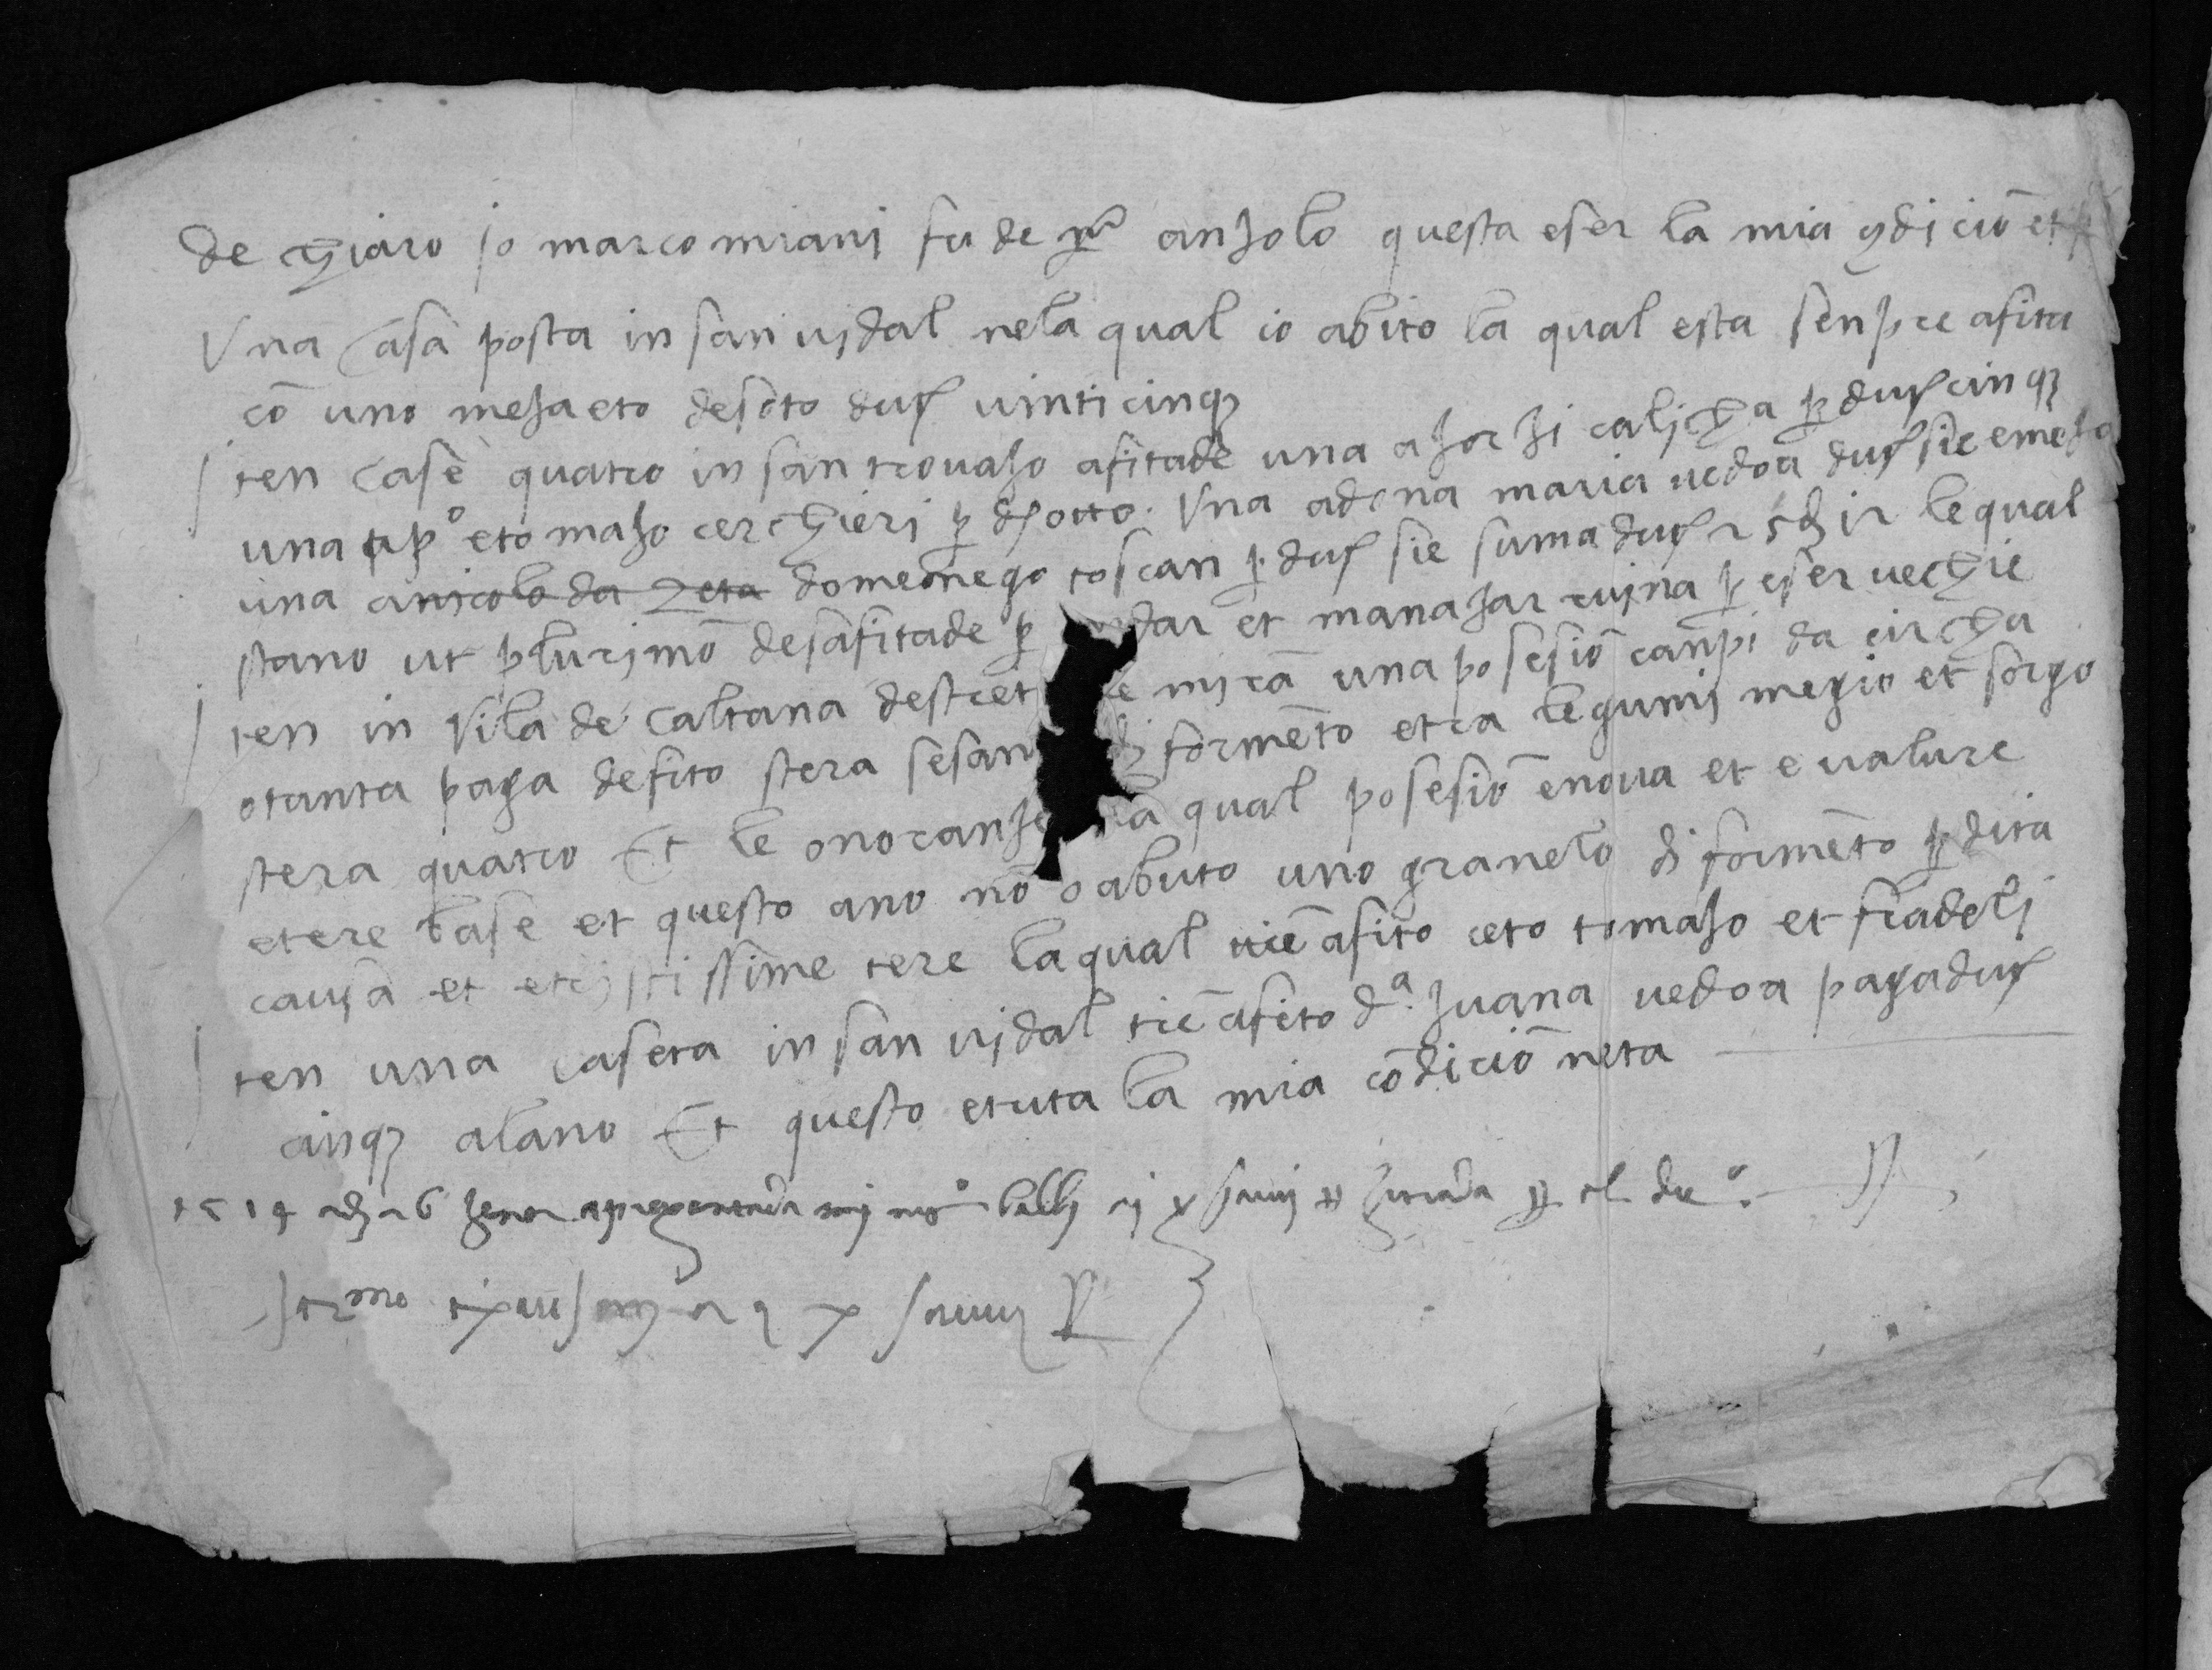 de chiaro io marco miani fu de mr anzolo questa eser la mia 9dició et
Una casa posta in san vidal nela qual io abito la qual esta senpre afita
cō uno mezaeto desoto duc vinticinq3
Iten case quatro in san trovazo afitade una a zorzi calicha p duc cinq3
una a po eto mazo cerchieri p d octo. Una a dona maria vedoa duc sie e meza
una a nicolo da zeta domeonego toscan p duc sie suma duc 25 d 12 le qual
stano ut plurimō desafitade p dar et manazar ruina p eser vechie
Iten in Vila de caltana destret de mirā una posesiō canpi da circha
otanta paga de fito stera sesan di formēto et ra legumi megio et sorgo
stera quatro Et le onoranze la qual posesiō e nova et e valure
e tere base et questo ano nō o abuto uno granelo di formēto p dita
causa et e tristissime tere la qual tiē afito ceto tomazo et fradeli
Iten una caseta in san vidal tiē afito da. zuana vedoa paga duc
cinq3 alano Et questo e tuta la mia cōdiciō neta
1514 adi 26 zener apresentada balbi ai X savii zurada
X savii